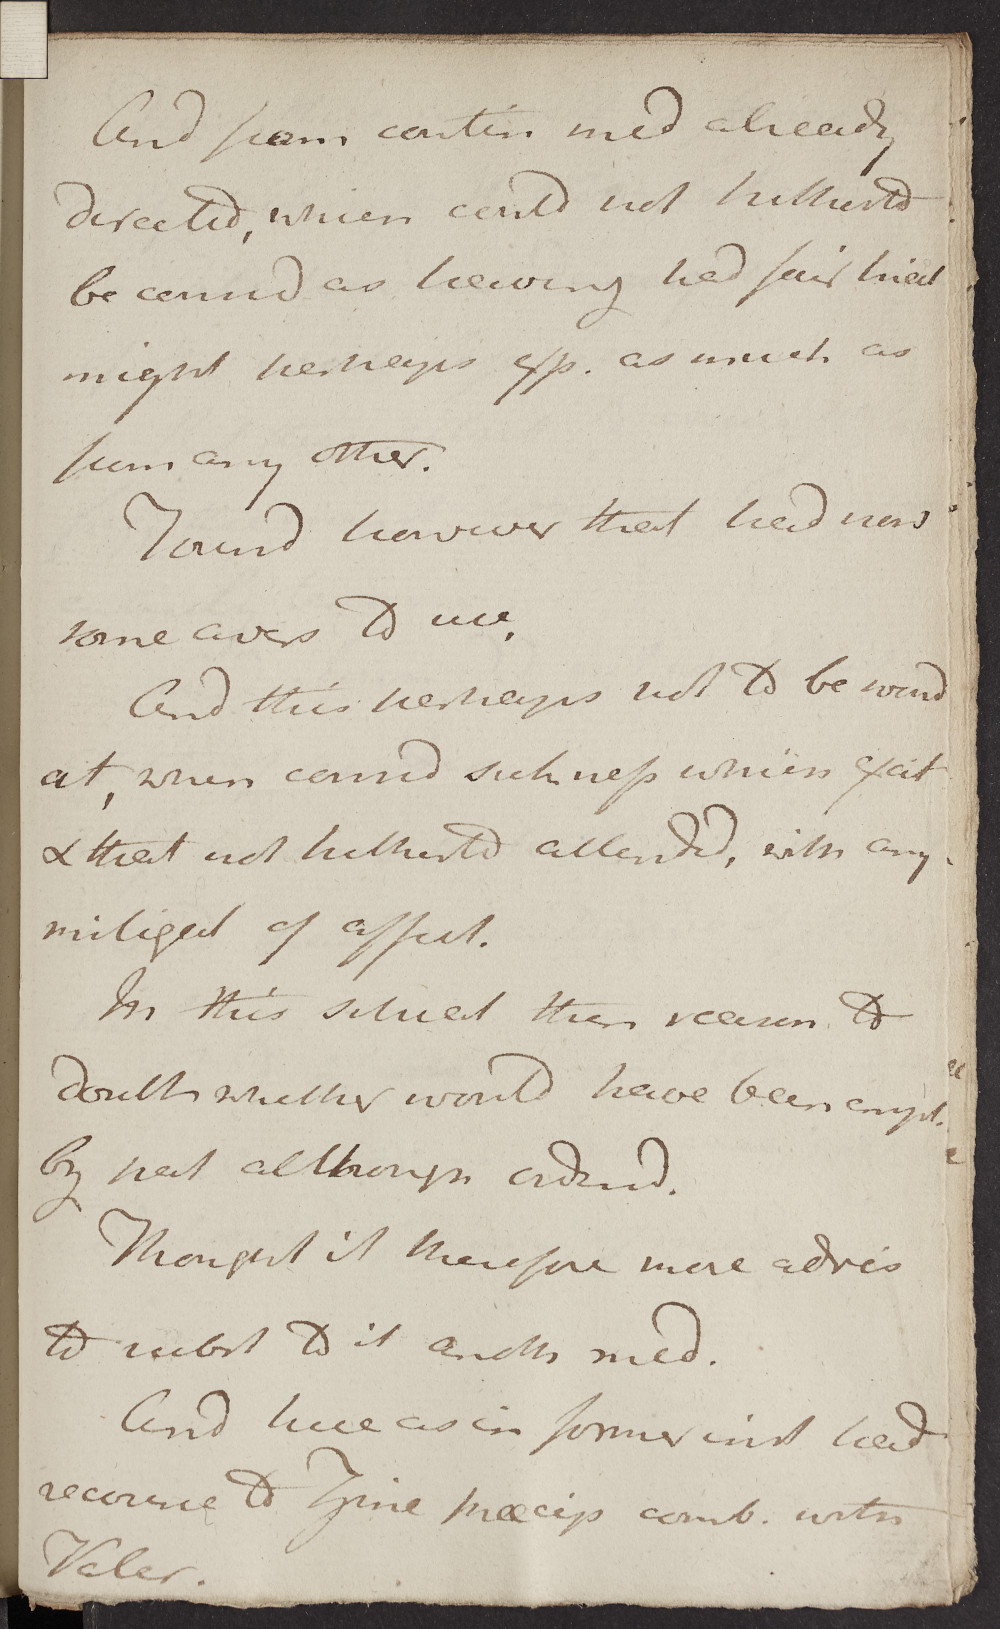 And from contin med already
directed, which could not hitherto
be consid as having had fair trial
might perhaps exp. as much as
from any other.
Found however that had now
some avers to use,
And this perhaps not to be wond
at, when consid sickness which excit
& that not hitherto attended, with any
mitigat of affect.
In this situat then reason to
doubt whether would have been empl.
by pat although ordered.
Thought it therefore more advis
to subst to it anoth med.
And here as in former inst had
recourse to Zinc præcip comb. with
Valer.